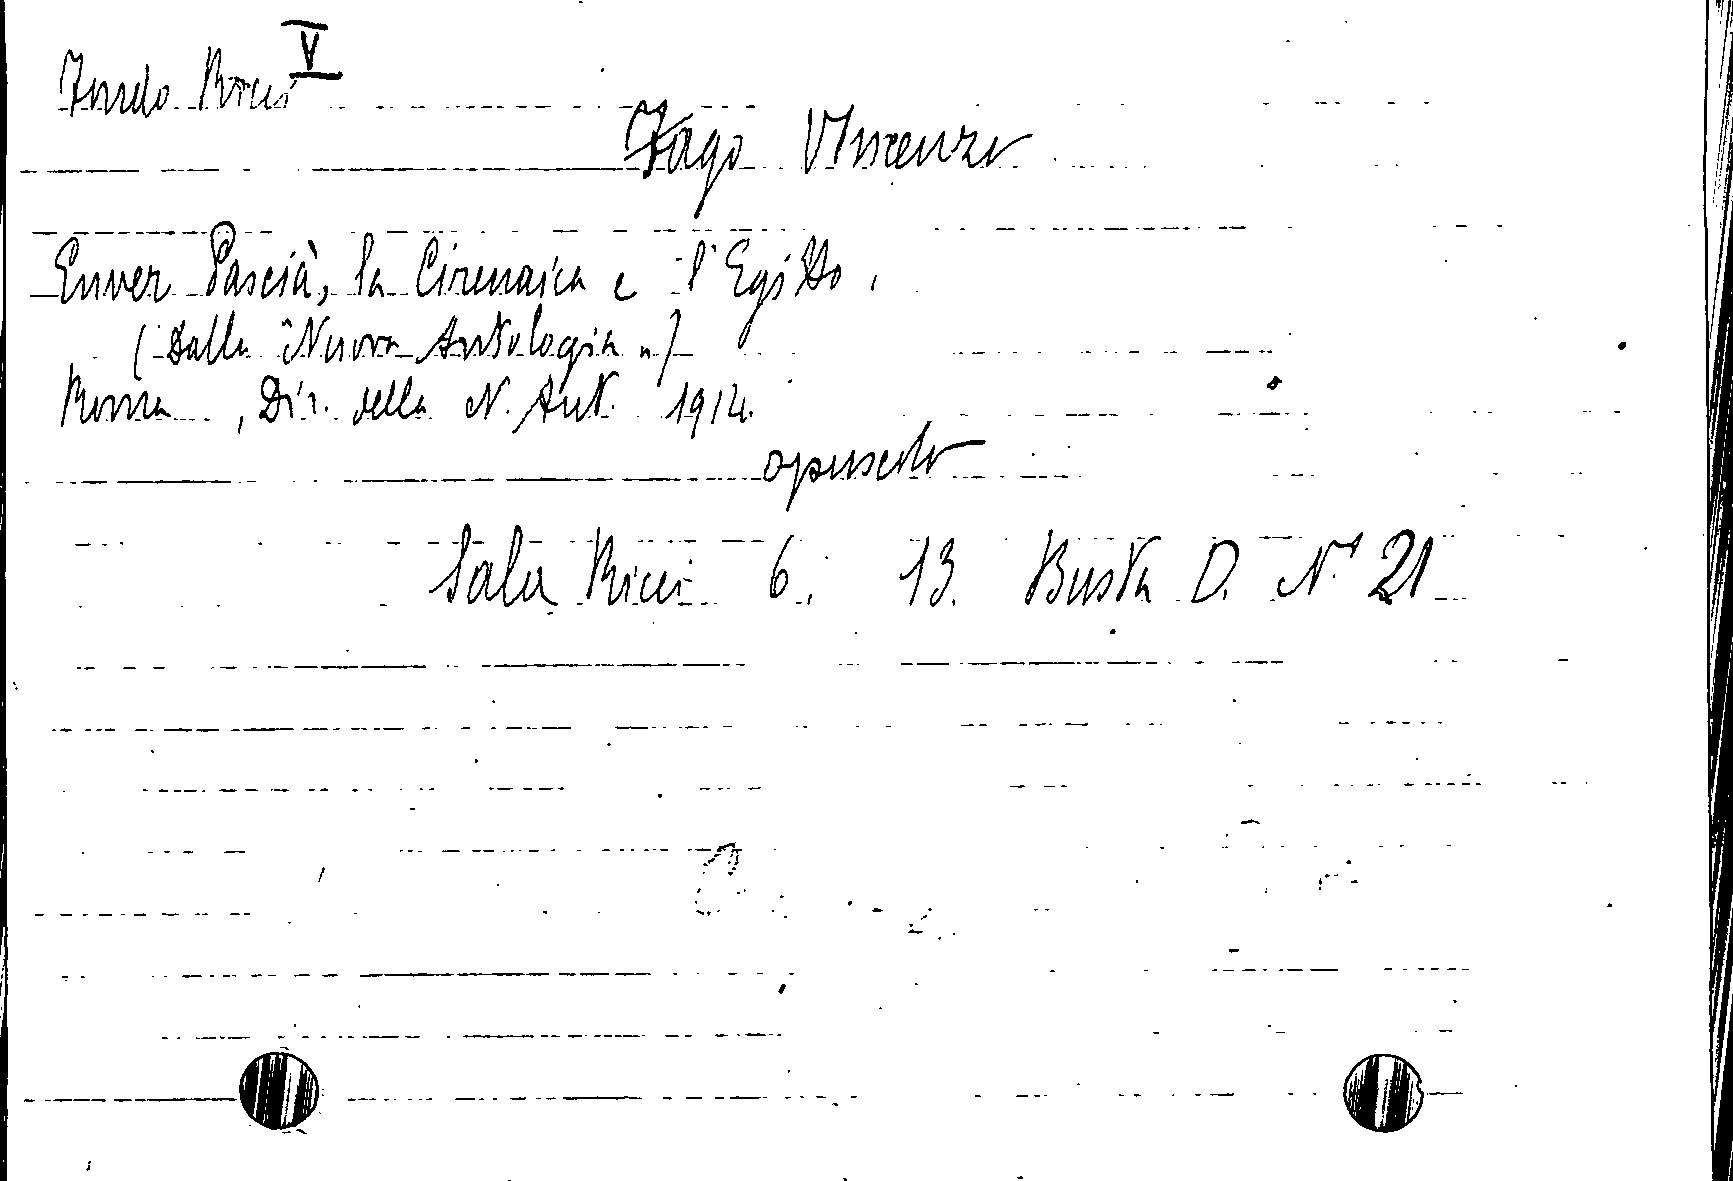 V
Fondo Ricci
Fago Vincenzo
Enver Pascià, la Cirenaica e l'Egitto.
(Dalla "Nuova Antologia")
Roma, Dir. della N. Ant. 1914.
opuscolo
Sala Ricci 6. 13. Busta D. N. 21